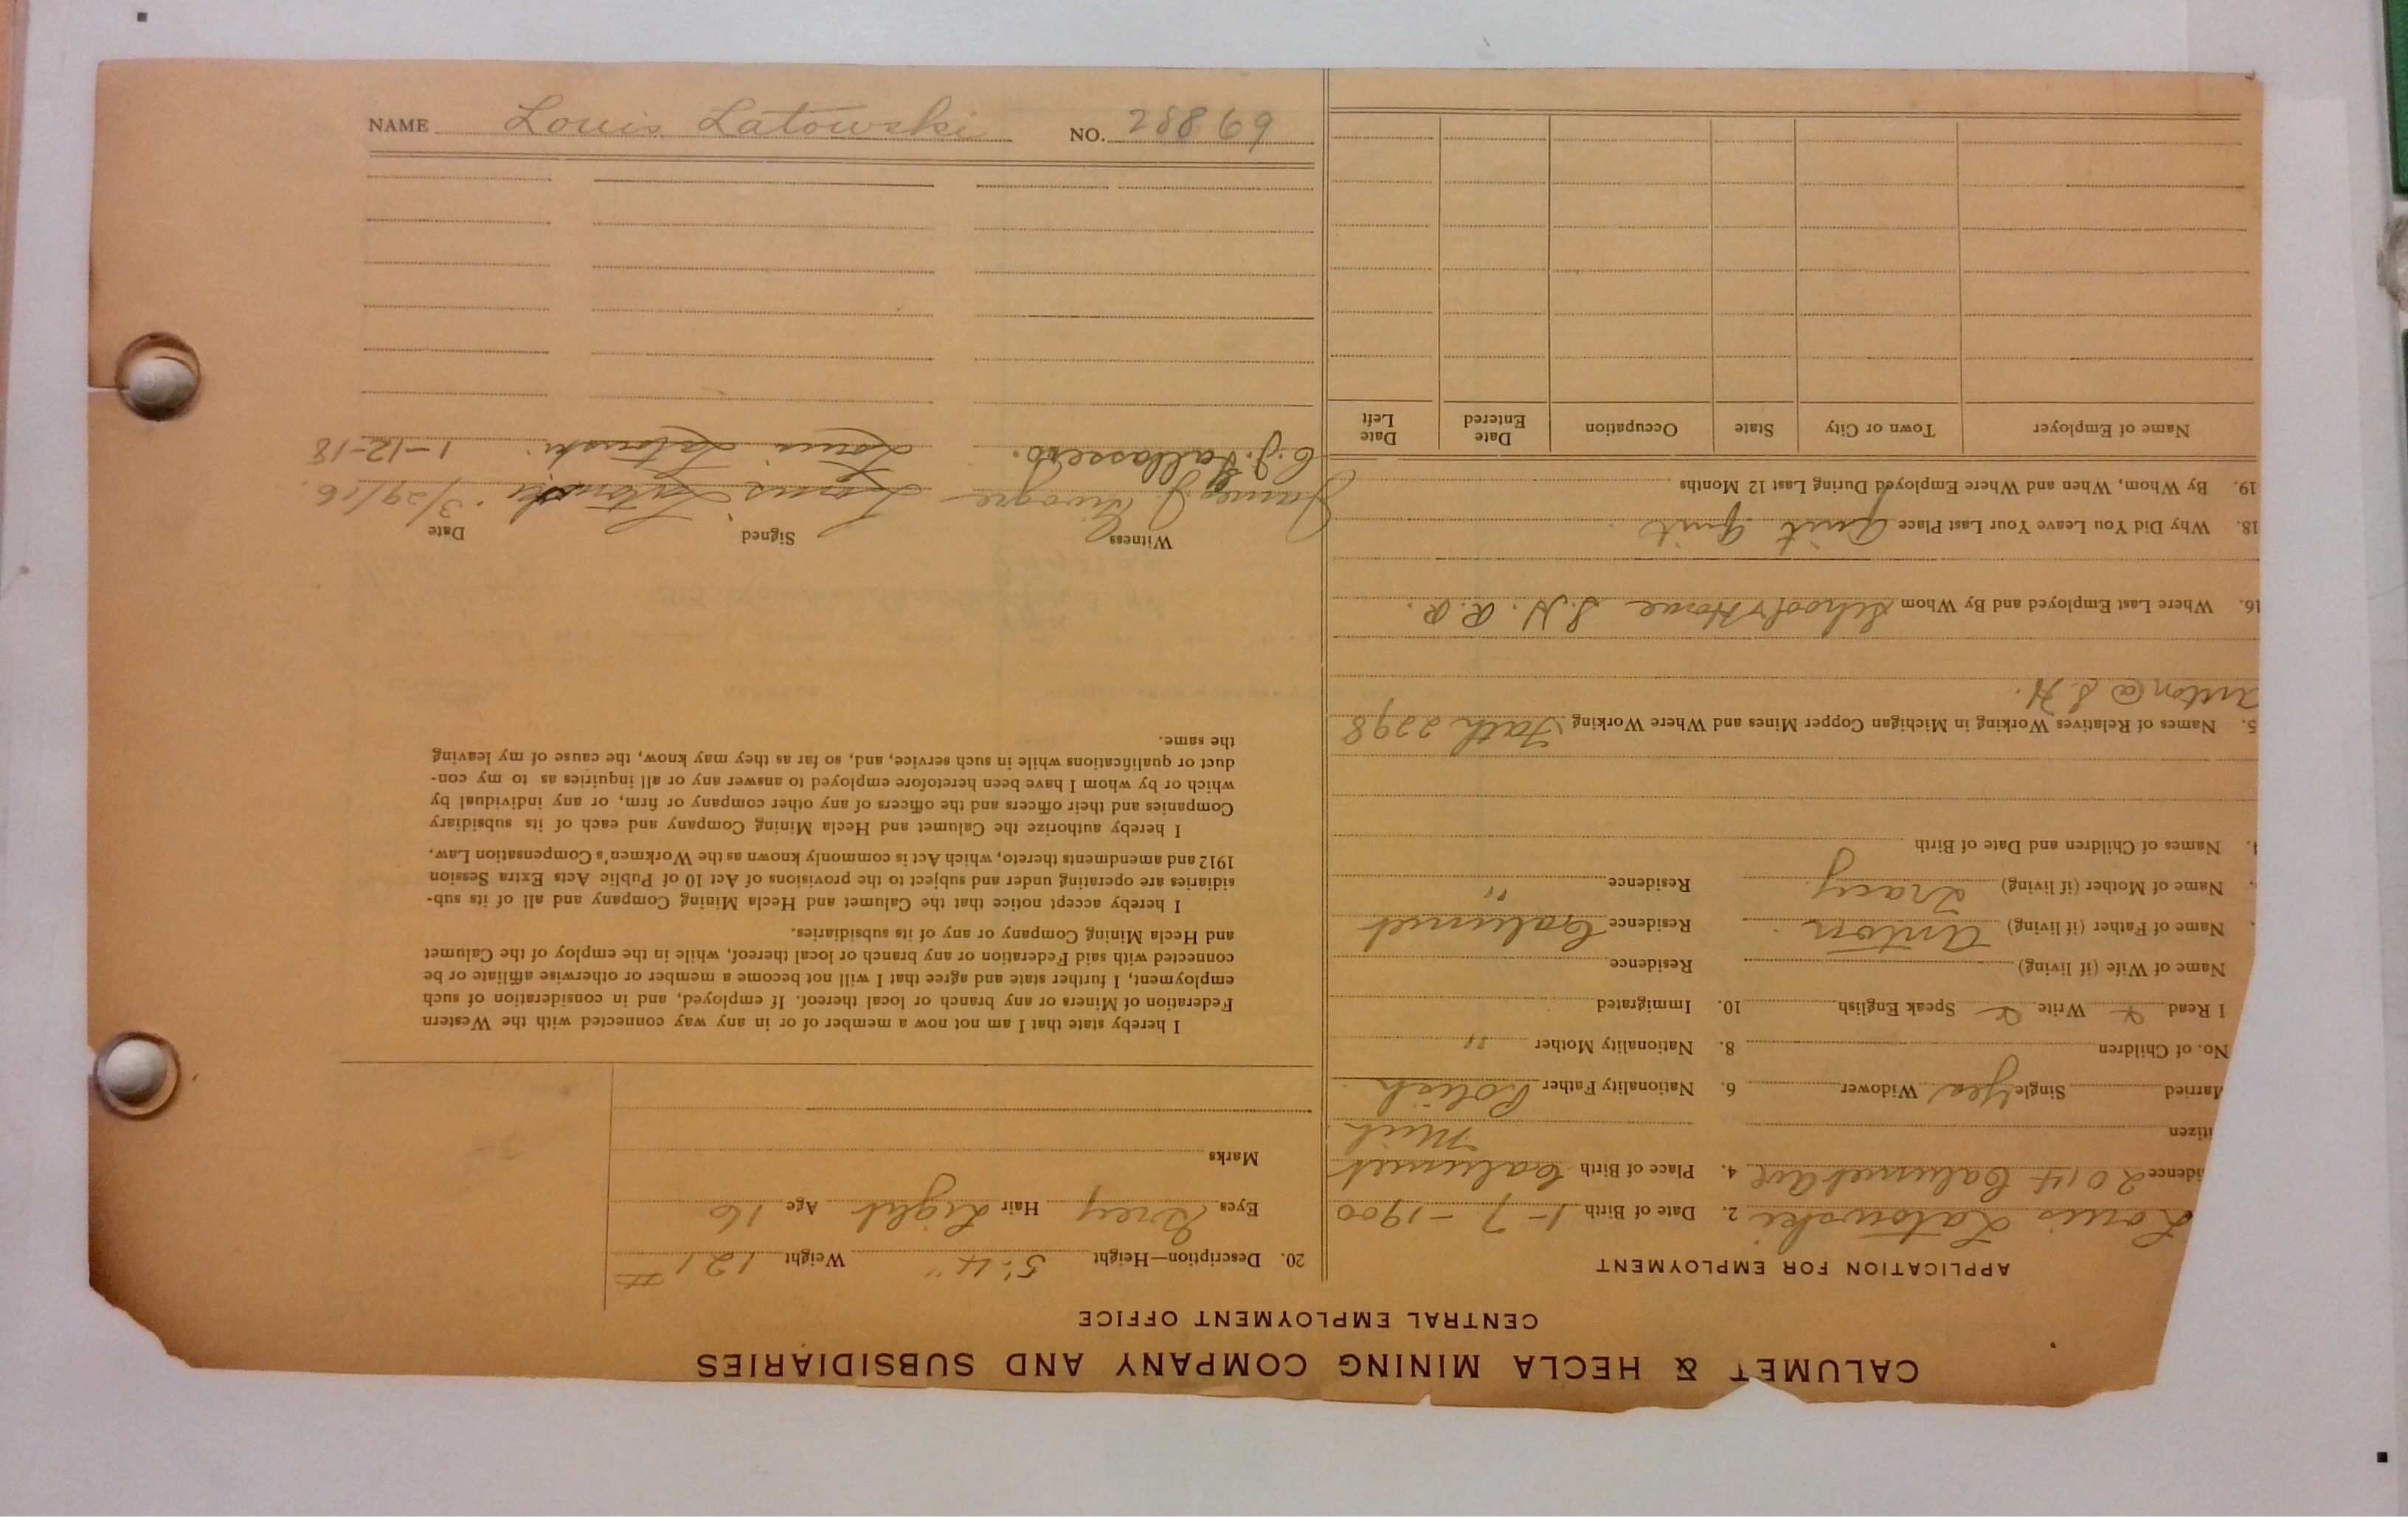 NAME Louis Latowski NO. 28869
CALUMET & HECLA MINING COMPANY AND SUBSIDIARIES
CENTRAL EMPLOYMENT OFFICE
APPLICATION FOR EMPLOYMENT
Louis Latowski 2. Date of Birth 1-7-1900
idence 2014 Calumet Ave 4. Place of Birth Calumet
itizen Mich
Married Single Yes Widower 6. Nationality Father Polish
No. of Children 8. Nationality Mother "
I Read Write Speak English 10. Immigrated
Name of Wife (if living) Residence
Name of Father (if living) Anton Residence Calumet
Name of Mother (if living) Tracy Residence "
Names of Children and Date of Birth
5. Names of Relatives Working in Michigan Copper Mines and Where Working Fath 2298
Anton @ S.H.
16. Where Last Employed and By Whom School & Home S.H. R.R.
18. Why Did You Leave Your Last Place Quit Quit
19. By Whom, When and Where Employed During Last 12 Months
Name of Employer Town or City State Occupation Date Entered Date Left
20. Description—Height 5'4" Weight 121 #
Eyes Grey Hair Light Age 16
Marks
I hereby state that I am not now a member of or in any way connected with the Western
Federation of Miners or any branch or local thereof. If employed, and in consideration of such
employment, I further state and agree that I will not become a member or otherwise affiliate or be
connected with said Federation or any branch or local thereof, while in the employ of the Calumet
and Hecla Mining Company or any of its subsidiaries.
I hereby accept notice that the Calumet and Hecla Mining Company and all of its sub-
sidiaries are operating under and subject to the provisions of Act 10 of Public Acts Extra Session
1912 and amendments thereto, which Act is commonly known as the Workmen's Compensation Law.
I hereby authorize the Calumet and Hecla Mining Company and each of its subsidiary
Companies and their officers and the officers of any other company or firm, or any individual by
which or by whom I have been heretofore employed to answer any or all inquiries as to my con-
duct or qualifications while in such service, and, so far as they may know, the cause of my leaving
the same.
Witness Signed Date
James J. Louis Latowski 3/29/16.
C. J. Louis Latowski 1-12-18